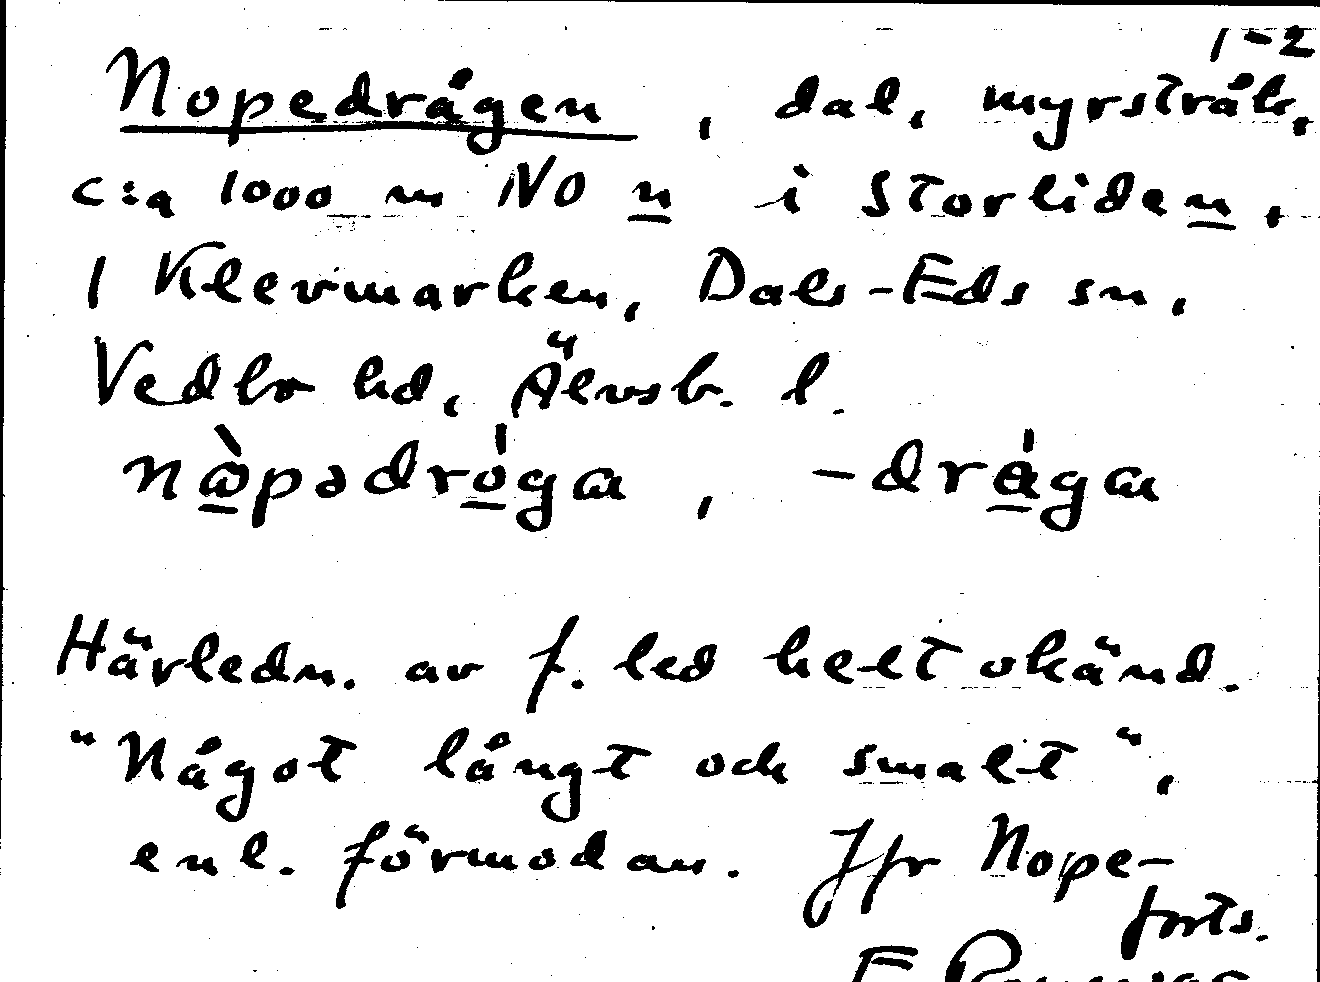 1-2
Nopedrågen, dal, myrstråk,
c:a 1000 m NO n i Storliden,
1 Klevmarken, Dals-Eds sn,
Vedbo hd, Älvsb. l.
-drågan
Härledn. av f. led helt okänd.
"Något långt och smalt",
enl. förmodan. Jfr Nope-
forts.